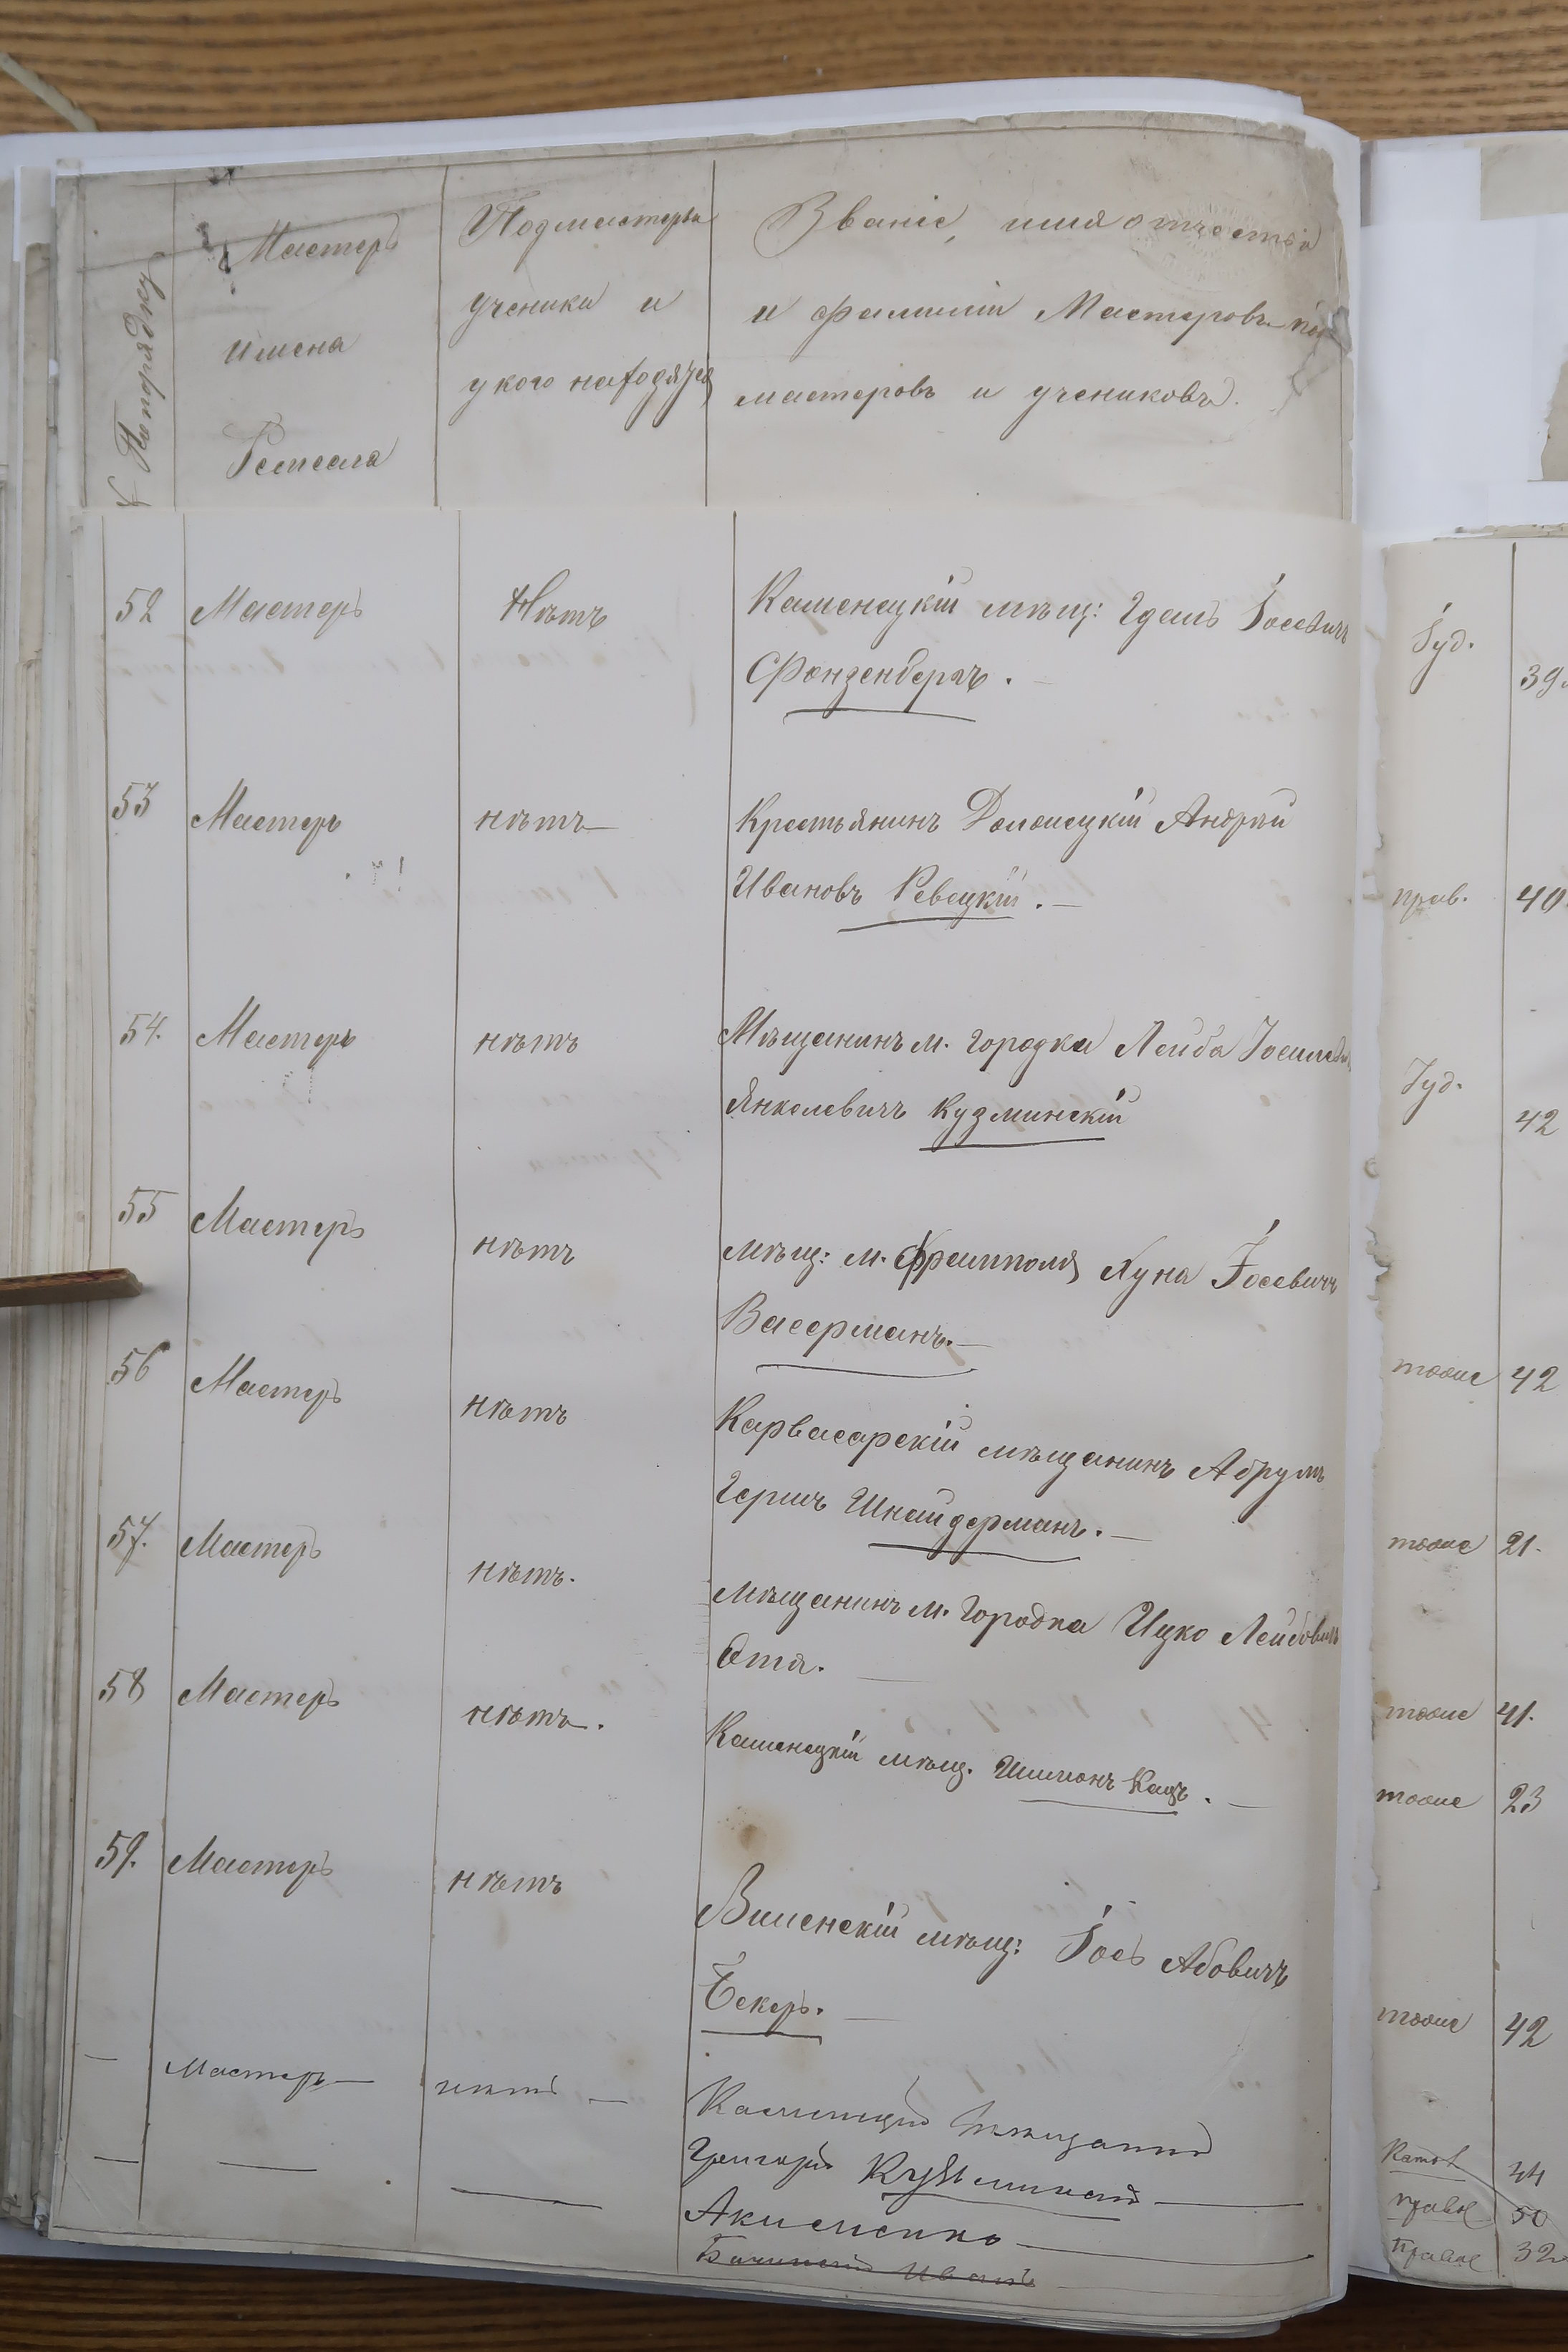 № По порядку
Мастеръ
имена
Ремесла
Подмастерья
ученики и
у кого находятся
Званіе, имя отчество
и фамиліи Мастеровъ под
мастеровъ и учениковъ.
52 Мастеръ Нѣтъ Каменецкій мѣщ:
Фонзенбергъ.
Іуд. 39
53 Мастеръ нѣтъ Крестьянинъ Андрей
Ивановъ Ревецкій.
прав. 40
54. Мастеръ нѣтъ Мѣщанинъ м. Городка Лейба
Янкелевичъ Кузминскій
Іуд. 42
55 Мастеръ нѣтъ мѣщ: м. Фрамполя Хуна Іосевичъ
Васерманъ.
тоже 42
56 Мастеръ нѣтъ Карвасарскій мѣщанинъ Абрумъ
Гершъ Шнайдерманъ.
тоже 21.
57. Мастеръ нѣтъ. мѣщанинъ м. Городка Ицко Лейбовичъ
тоже 41.
58 Мастеръ нѣтъ. Каменецкій мѣщ. Шимонъ Кацъ.
тоже 23
59. Мастеръ нѣтъ Виленскій мѣщ: Іосъ Абовичъ
Бекеръ.
тоже 42
Мастеръ нѣтъ Каменецкій мѣщанинъ
Григорій Кузьминскій
34
Акименко
50
Иванъ
32